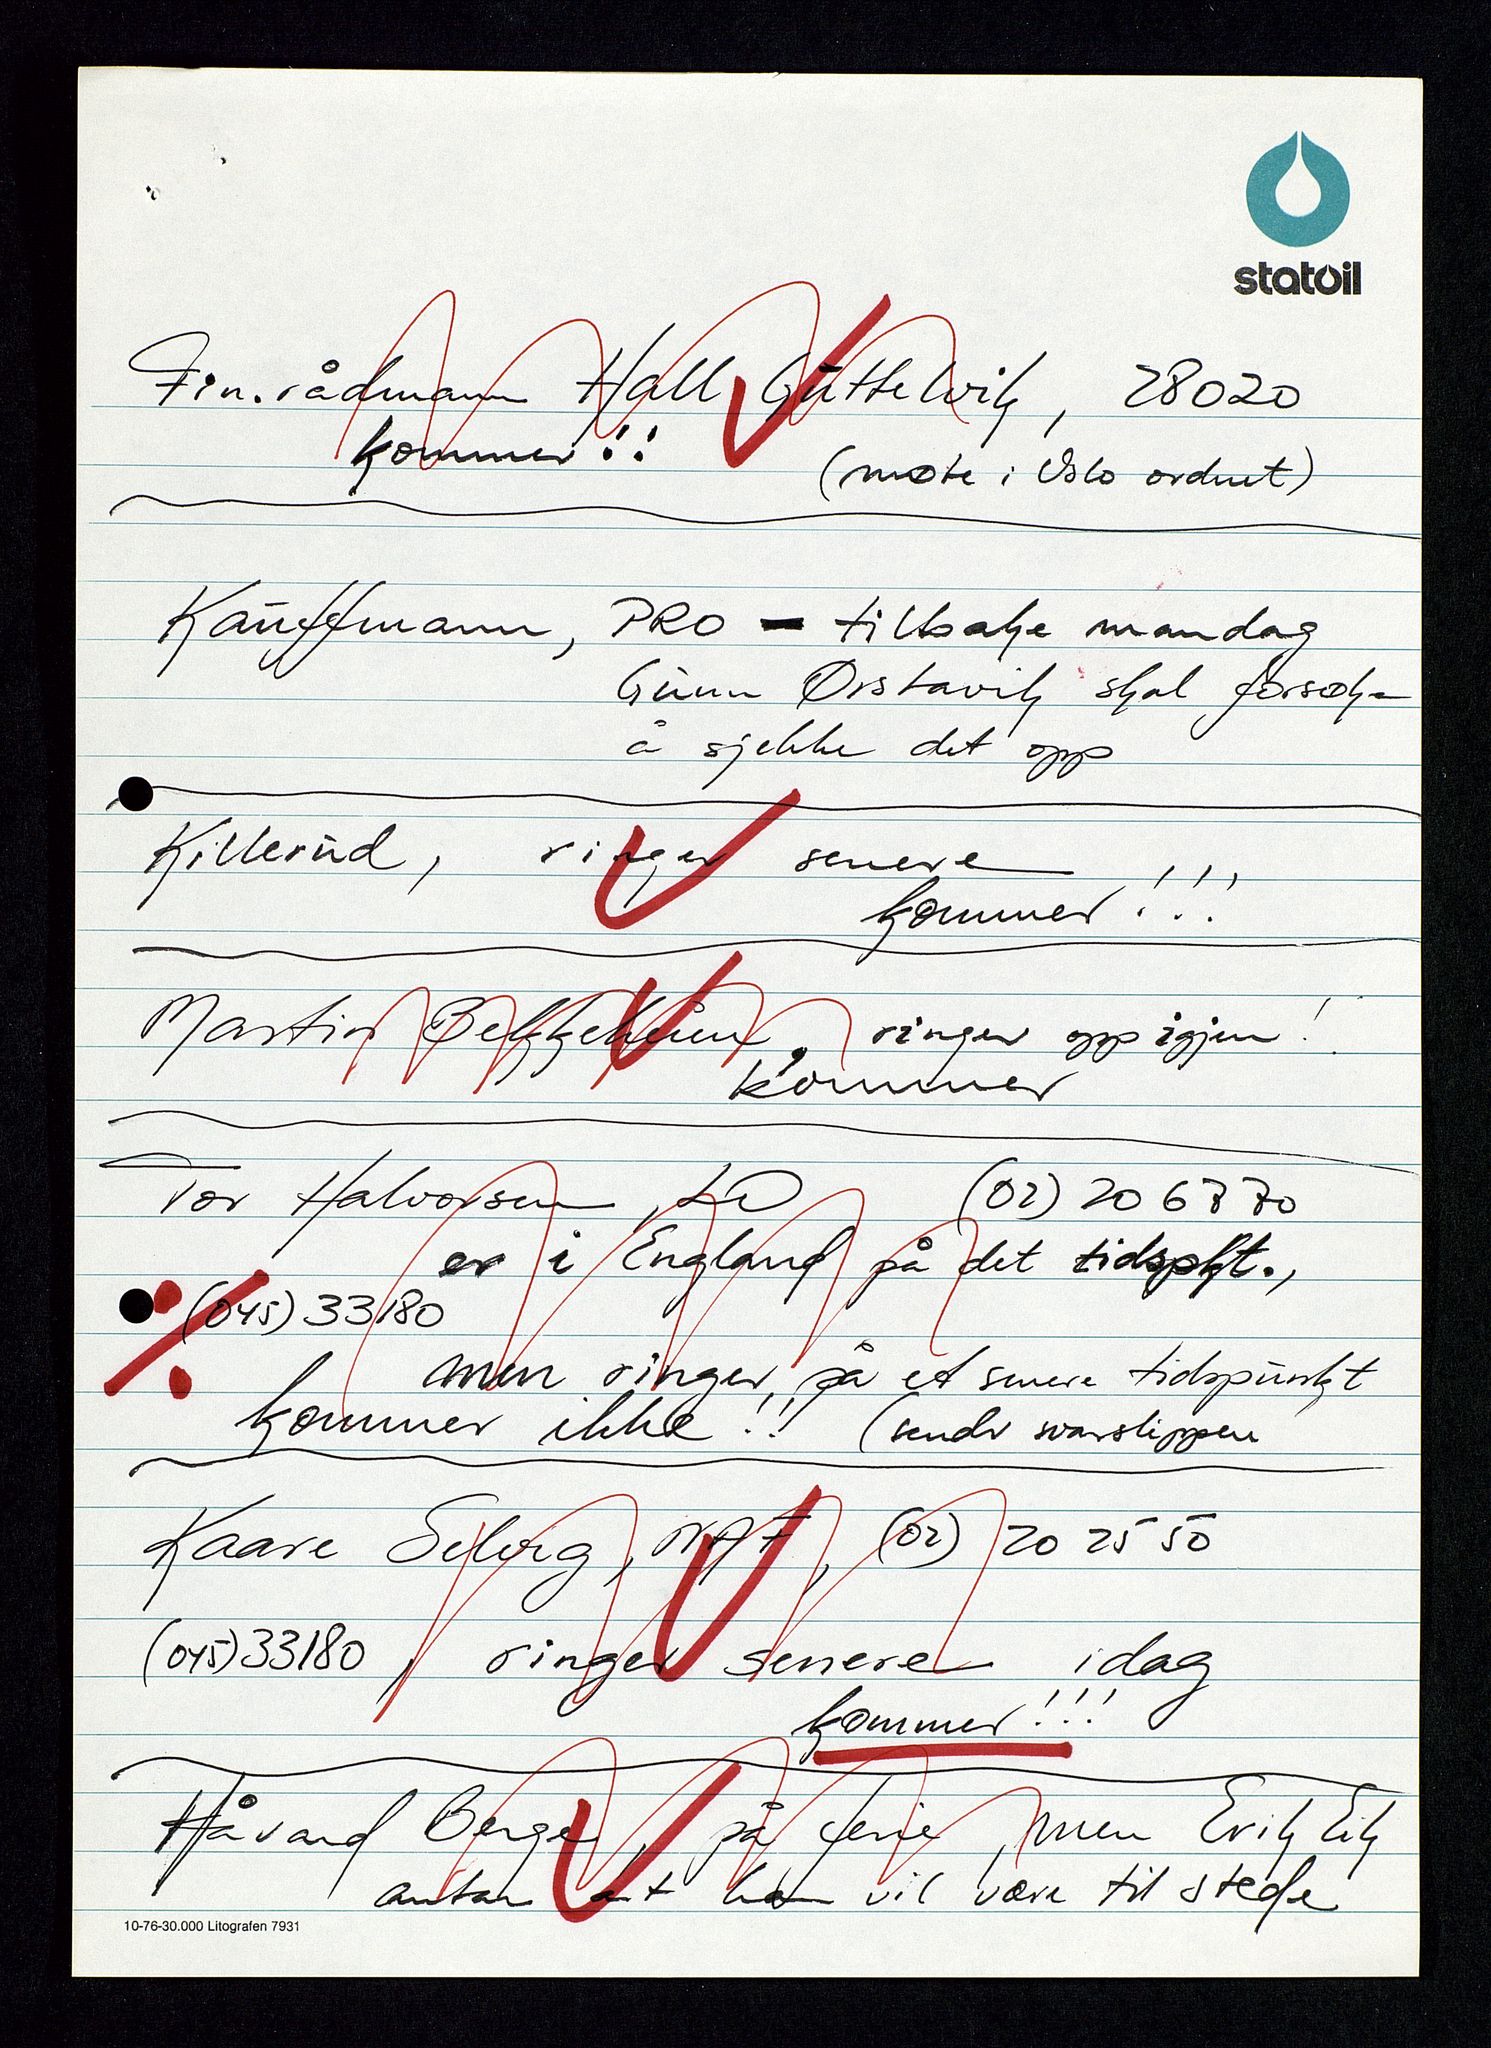 statoil
Fin.rådmann Hall Guttelvik, 28020
kommer!!
(møte i Oslo ordnet)
Kauffmann, PRO - tilbake mandag
Gunn Ørstavik skal forsøke
å sjekke det opp
Killerud, ringer senere
kommer!!!
Martin Bekkeheien, ringer opp igjen!
kommer
Tor Halvorsen, LO (02) 20 67 70
er i England på det tidspkt.,
(045) 33180
men ringer på et senere tidspunkt
kommer ikke!! (sender svarslippen
Kaare Selvig, NAF, (02) 20 25 50
(045) 33180, ringer senere idag
kommer!!!
Håvard Berge, på ferie, men Erik Eik
antar at han vil være til stede
10-76-30.000 Litografen 7931